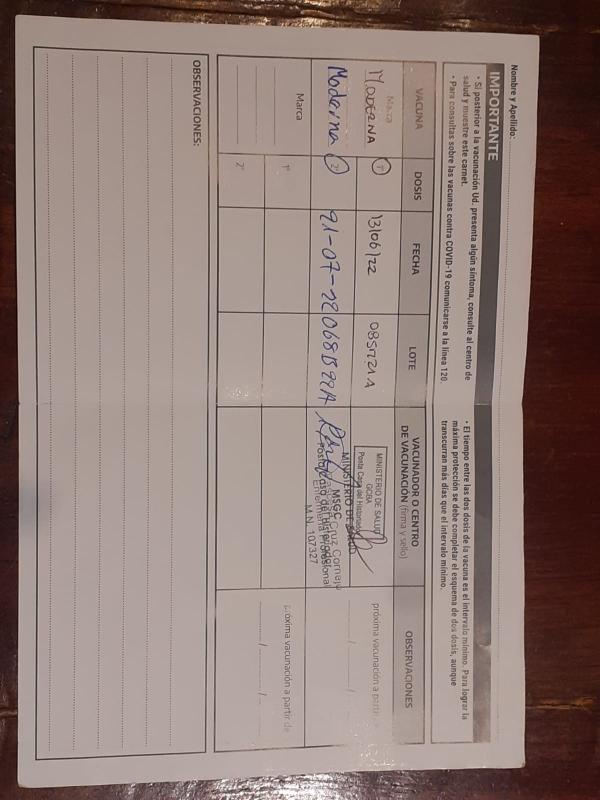 Nombre y Apellido:
IMPORTANTE
• Si posterior a la vacunación Ud. presenta algún síntoma, consulte al centro de
salud y muestre este carnet.
• Para consultas sobre las vacunas contra COVID-19 comunicarse a la línea 120.
• El tiempo entre las dos dosis de la vacuna es el intervalo mínimo. Para lograr la
máxima protección se debe completar el esquema de dos dosis, aunque
transcurran más días que el intervalo mínimo.
VACUNA DOSIS FECHA LOTE VACUNADOR O CENTRO DE VACUNACIÓN (firma y sello) OBSERVACIONES
Marca
MODERNA 1° 13/06/22
MINISTERIO DE SALUD
GCBA
Posta Casa del Historiador
próxima vacunación a partir
/
Moderna 2°
MINISTERIO DE SALUD
MSGC
Cruz Cornejo
Enfermería Profesional
M.N. 107327
Marca 1° próxima vacunación a partir de
/ /
2°
OBSERVACIONES: